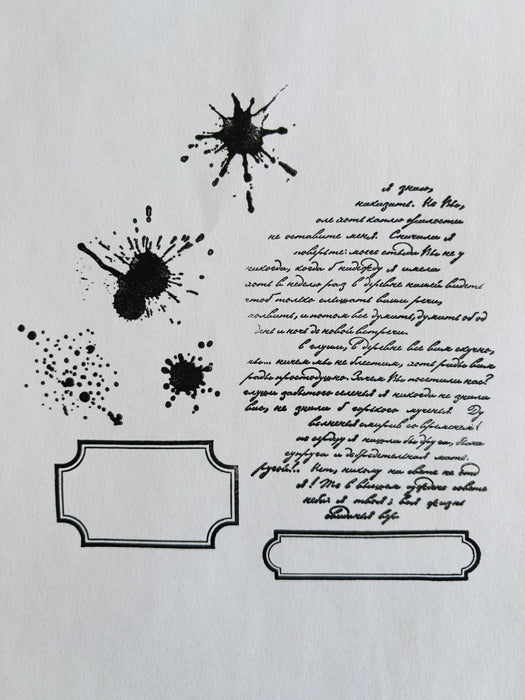 Я знаю,
наказать. Но Вы,
оле хоть каплю жалости
не оставите меня. Сначала я
поверьте: моего стыда Вы не у
никогда, когда б надежду я имела
хоть в неделю раз в деревне нашей видеть
чтоб только слышать ваши речи,
молвить, и потом все думать, думать об од
день и ночь до новой встречи.
в глуши, в деревне все вам скучно,
ничем мы не блестим, хоть рады вам
рады простодушно. Зачем Вы посетили нас?
глуши забытого селенья я никогда не знала
вас, не знала б горького мученья. Ду
волненья смирив со временем
по сердцу я нашла бы друга, была
супруга и добродетельная мать.
Нет, никому на свете не отд
я! То в вышнем суждено совете
неба: я твоя; вся жизнь
свиданья вер